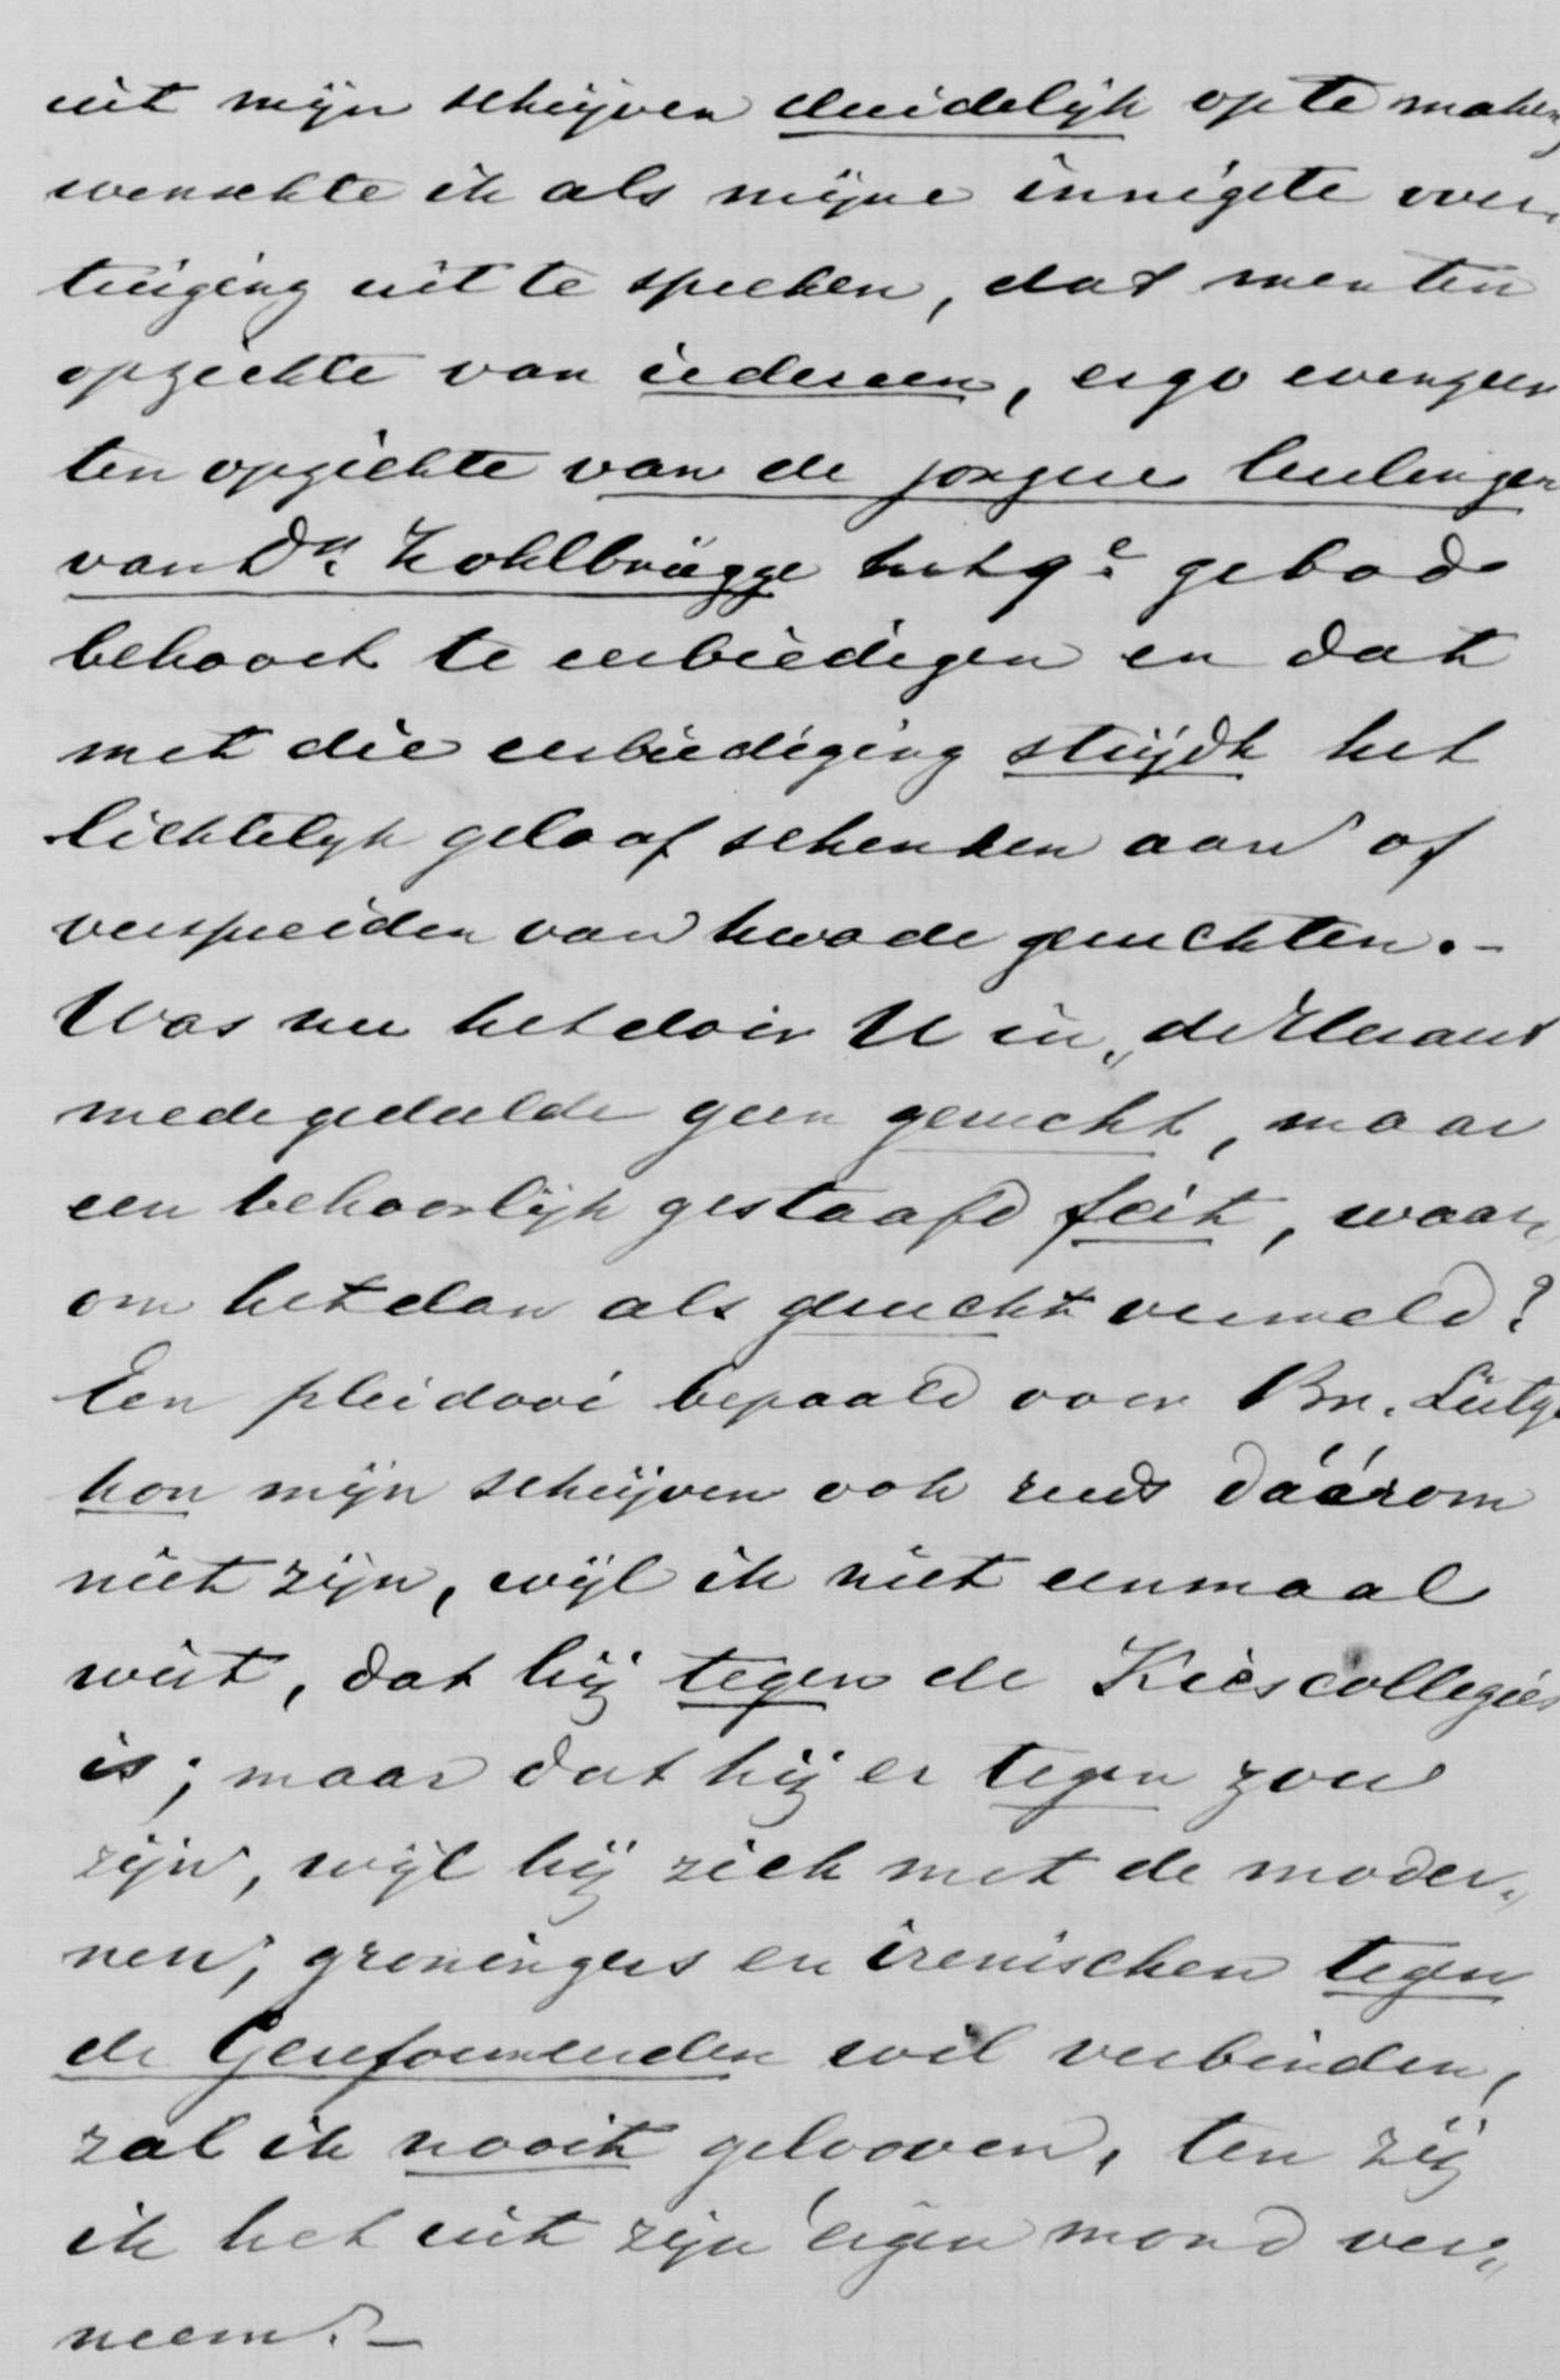 uit mijn schrijven duidelijk op te maken
wenschte ik als mijne innigste over„
tuiging uit te spreken, dat men ten
opzichte van iedereen, ergo evenzeer
ten opzichte van de jongere leerlingen
van Dr. Kohlbrügge het 9e gebod
behoort te eerbiedigen en dat
met die eerbiediging strijdt het
lichtelijk geloof schenken aan of
verspreiden van kwade geruchten.-
Was nu het door U in „de Heraut
medegedeelde geen gerucht, maar
een behoorlijk gestaafd feit, waar„
om het dan als gerucht vermeld?
Een pleidooi bepaald voor Br. Lütge
kon mijn schrijven ook reeds dáárom
niet zijn, wijl ik niet eenmaal
weet, dat hij tegen de Kiescollegies
is; maar dat hij er tegen zou
zijn, wijl hij zich met de moder„
nen, groningers en irenischen tegen
de Gereformeerden wil verbinden,
zal ik nooit gelooven, ten zij
ik het uit zijn eigen mond ver„
neem.-